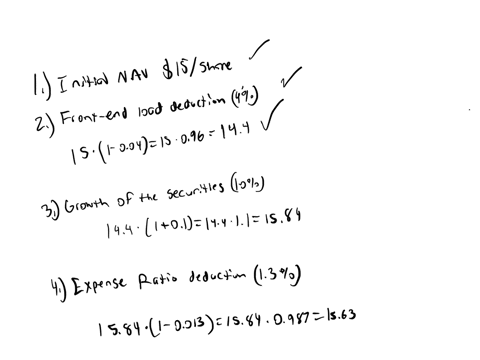 1.) Initial NAV $15/share ✓
2.) Front-end load deduction (4%) ✓
15·(1-0.04)=15·0.96=14.4 ✓
3.) Growth of the securities (10%)
14.4·(1+0.1)=14.4·1.1=15.84
4.) Expense Ratio deduction (1.3%)
15.84·(1-0.013)=15.84·0.987=15.63